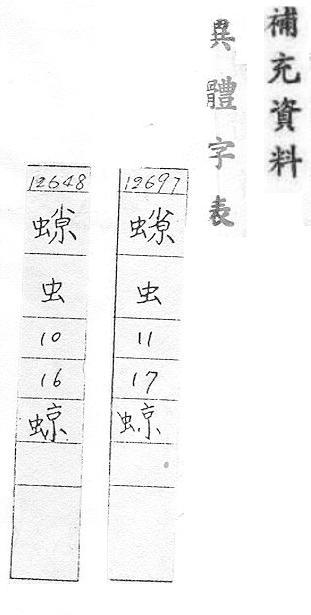 補充資料
異體字表
12697
虫
11
17
12648
虫
10
16